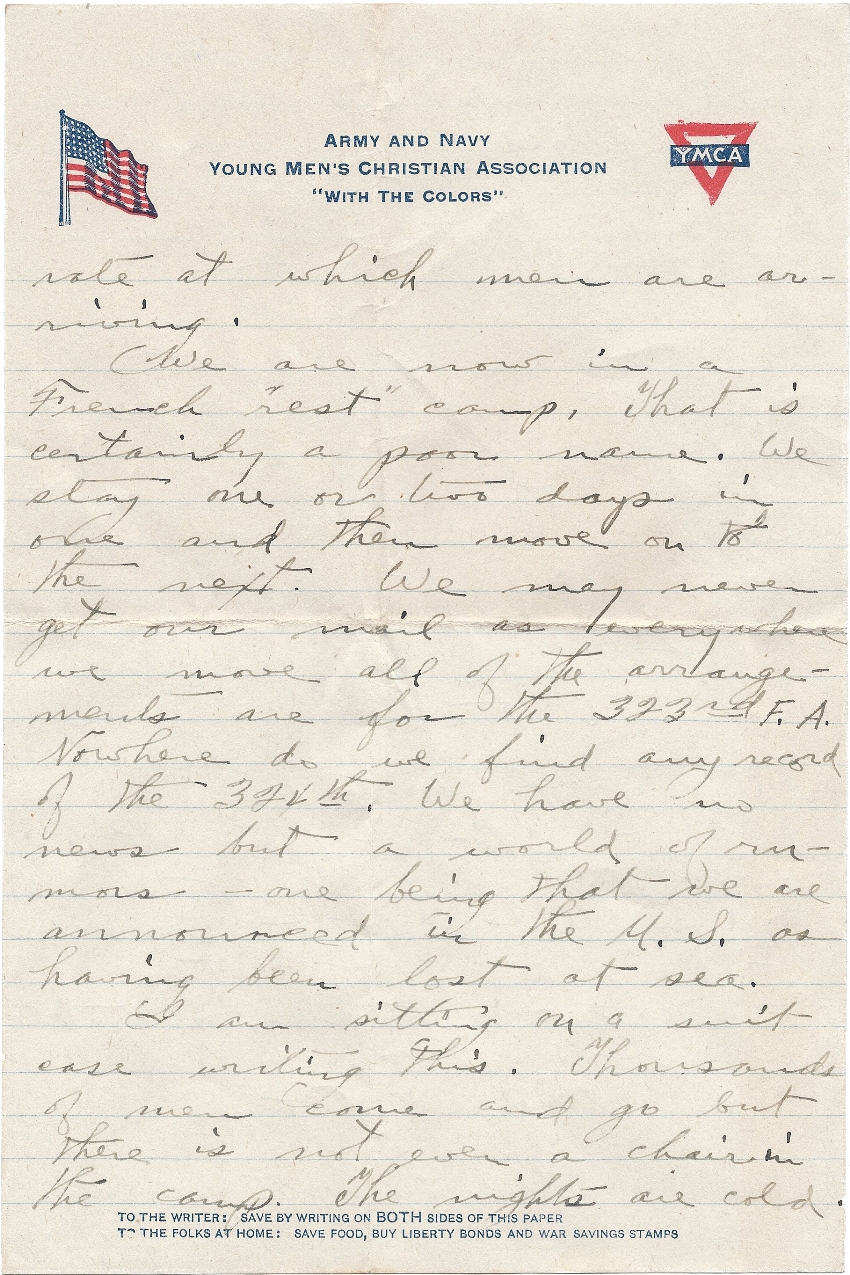 ARMY AND NAVY
YOUNG MEN'S CHRISTIAN ASSOCIATION
"WITH THE COLORS"
YMCA
rate at which men are ar-
riving.
We are now in a
French "rest" camp, That is
certainly a poor name. We
stay one or two days in
one and then move on to
the next. We may never
get our mail as everywhere
we move all of the arrange-
ments are for the 323rd F. A.
Nowhere do we find any record
of the 324th. We have no
news but a world of ru-
mors - one being that we are
announced in the U. S. as
having been lost at sea.
I am sitting on a suit
case writing this. Thousands
of men come and go but
there is not even a chair in
the camp. The nights are cold.
TO THE WRITER: SAVE BY WRITING ON BOTH SIDES OF THIS PAPER
TO THE FOLKS AT HOME: SAVE FOOD, BUY LIBERTY BONDS AND WAR SAVINGS STAMPS